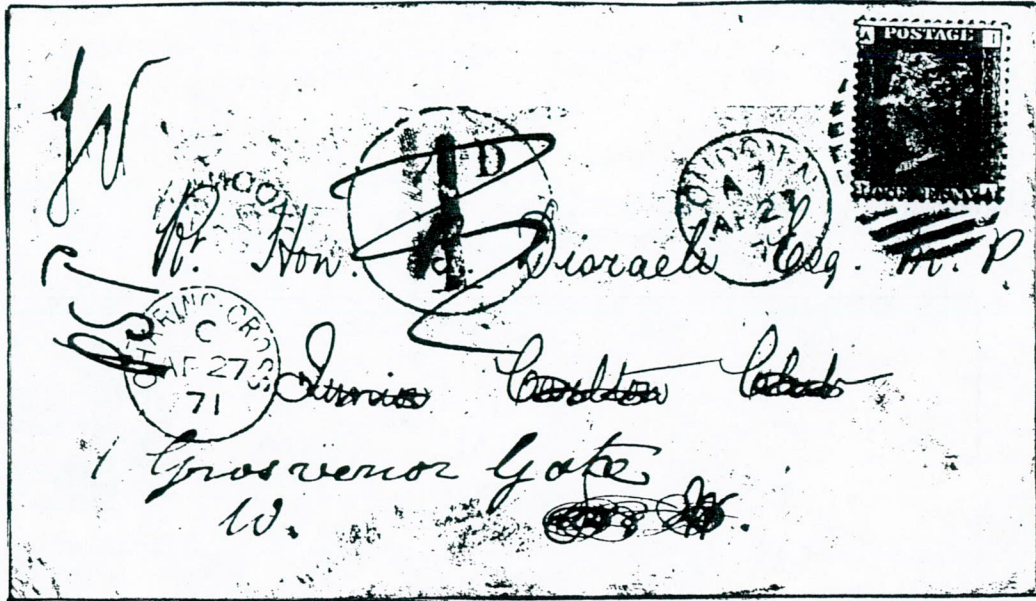 POSTAGE
ONE PENNY
W
1 D
LONDON-N
A 7
AP 27
Rt. Hon. Disraeli Esq. M. P
CHARING CROSS
C
AP 27
71
Junior Carlton Club
1 Grosvenor Gate
W.